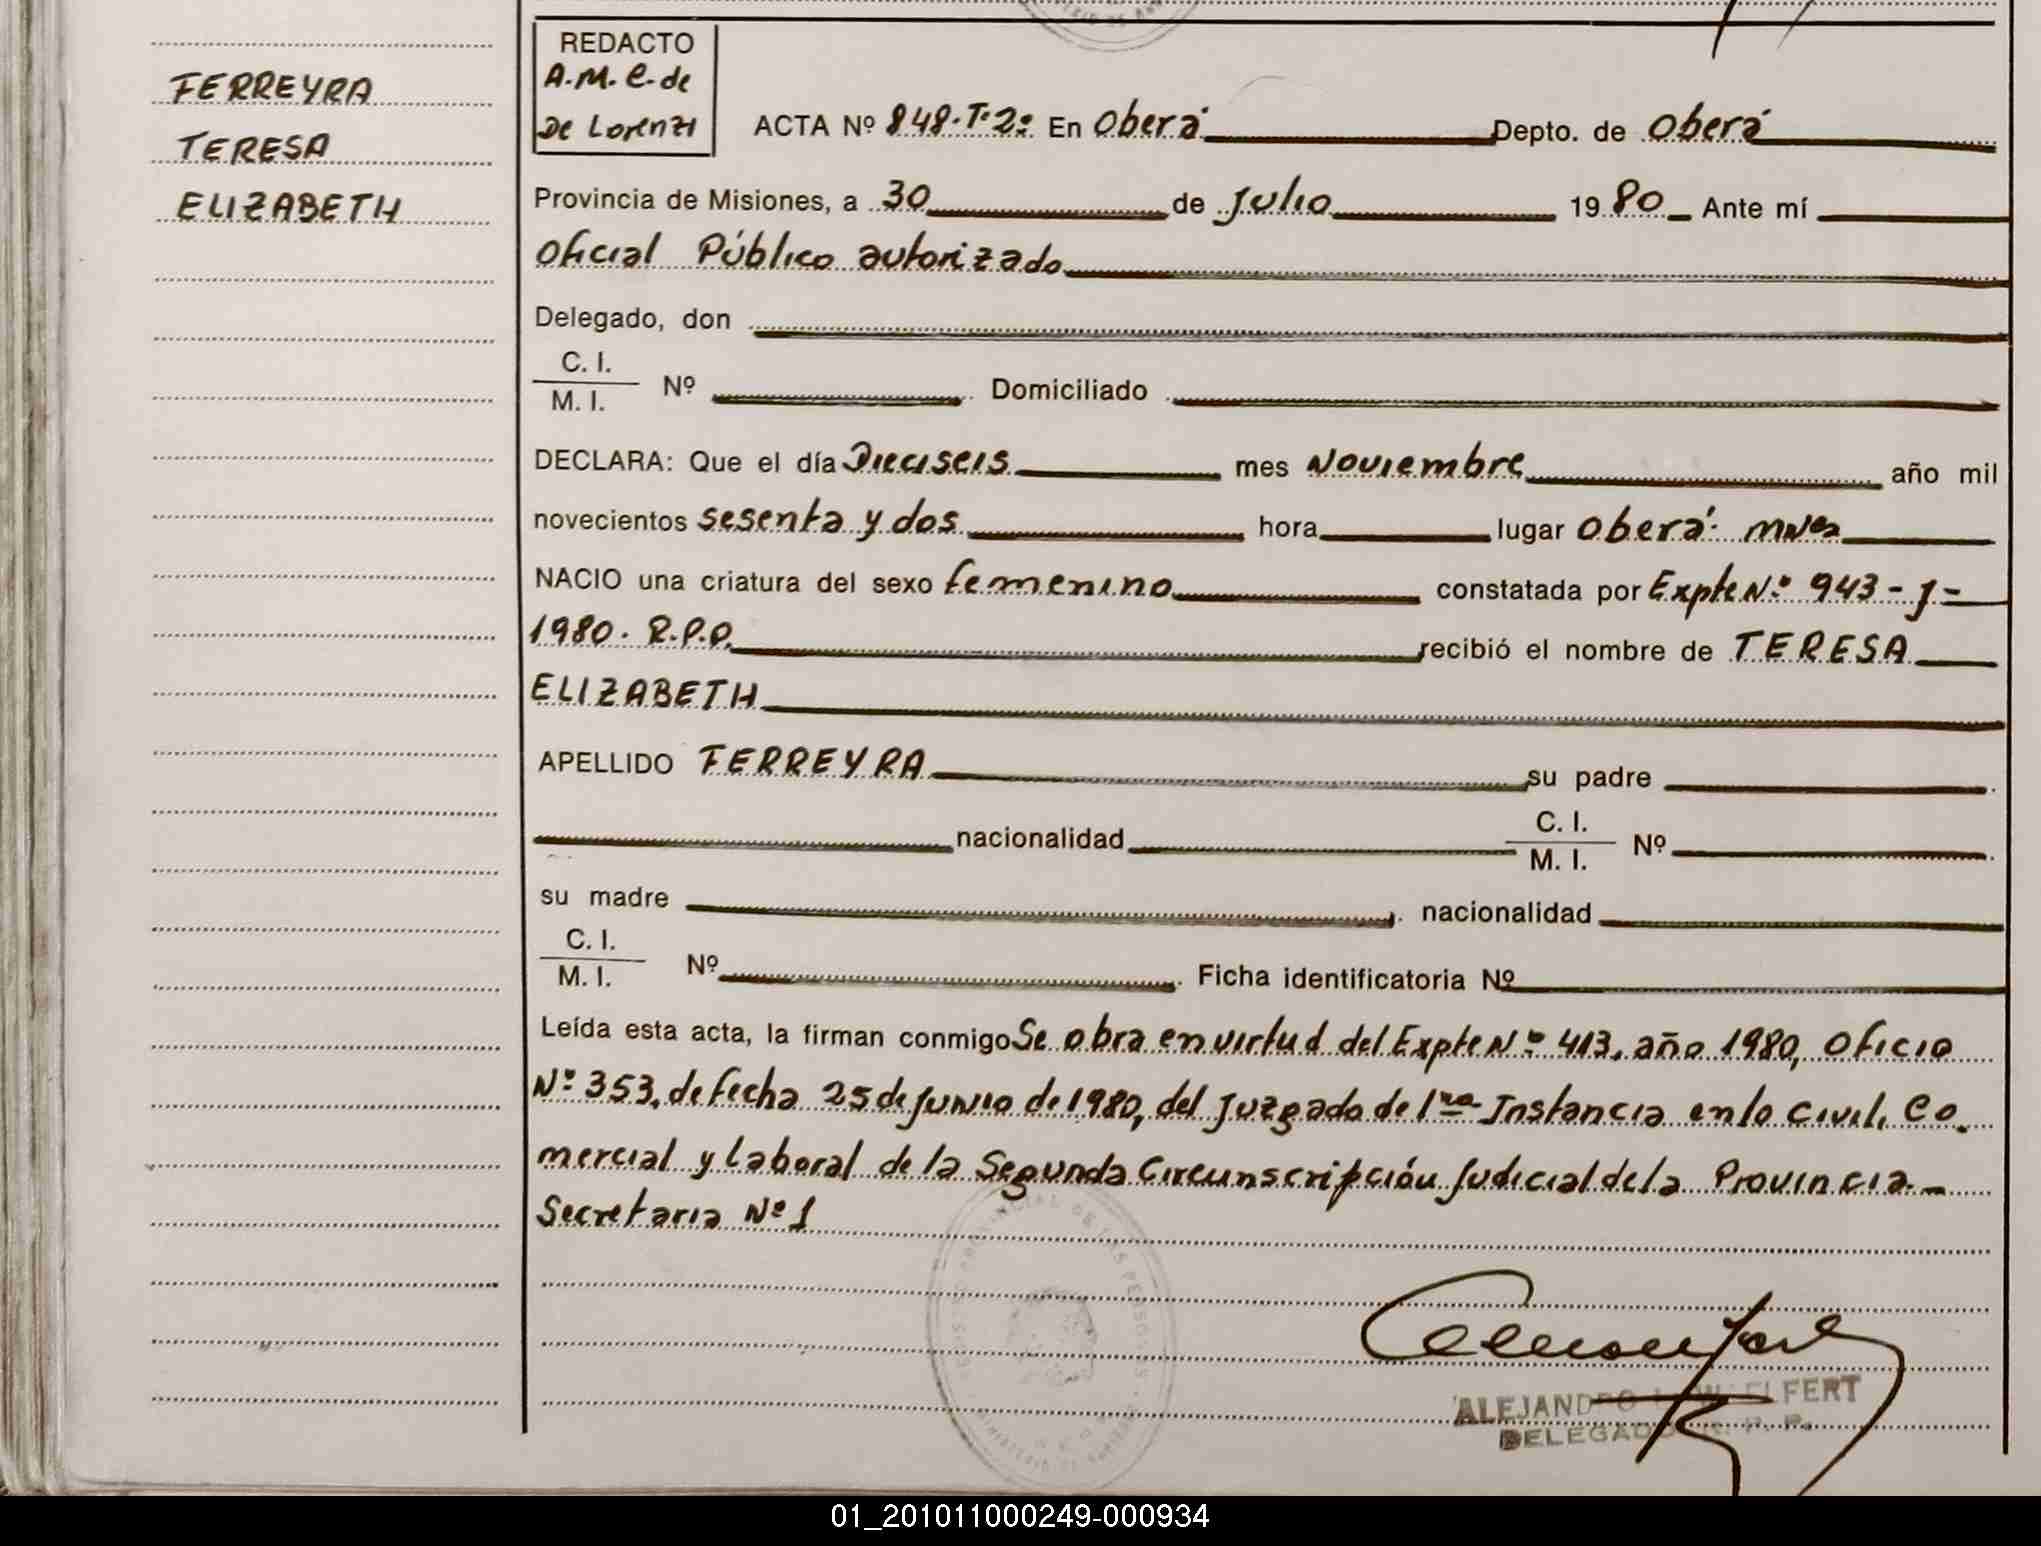 FERREYRA
TERESA
ELIZABETH
REDACTO
A.M.C. de
De Lorenzi
ACTA Nº 848-Tº2º En Oberá Depto. de Oberá
Provincia de Misiones, a 30 de Julio 1980 Ante mí
Oficial Público autorizado
Delegado, don
C. I.
M. I. Nº Domiciliado
DECLARA: Que el día Dieciseis mes Noviembre año mil
novecientos sesenta y dos hora lugar Oberá- Mnes
NACIO una criatura del sexo femenino constatada por Expte Nº 943-J-
1980. R.P.O. recibió el nombre de TERESA
ELIZABETH
APELLIDO FERREYRA su padre
nacionalidad C. I.
M. I. Nº
su madre nacionalidad
C. I.
M. I. Nº Ficha identificatoria Nº
Leída esta acta, la firman conmigo Se obra en virtud del Expte Nº 413, año 1980, Oficio
Nº 353, de fecha 25 de Junio de 1980, del Juzgado de 1ra Instancia en lo Civil, Co.
mercial y Laboral de la Segunda Circunscripción Judicial de la Provincia-
Secretaria Nº 1
ALEJANDRO
DELEGADO R. P. P.
01_201011000249-000934